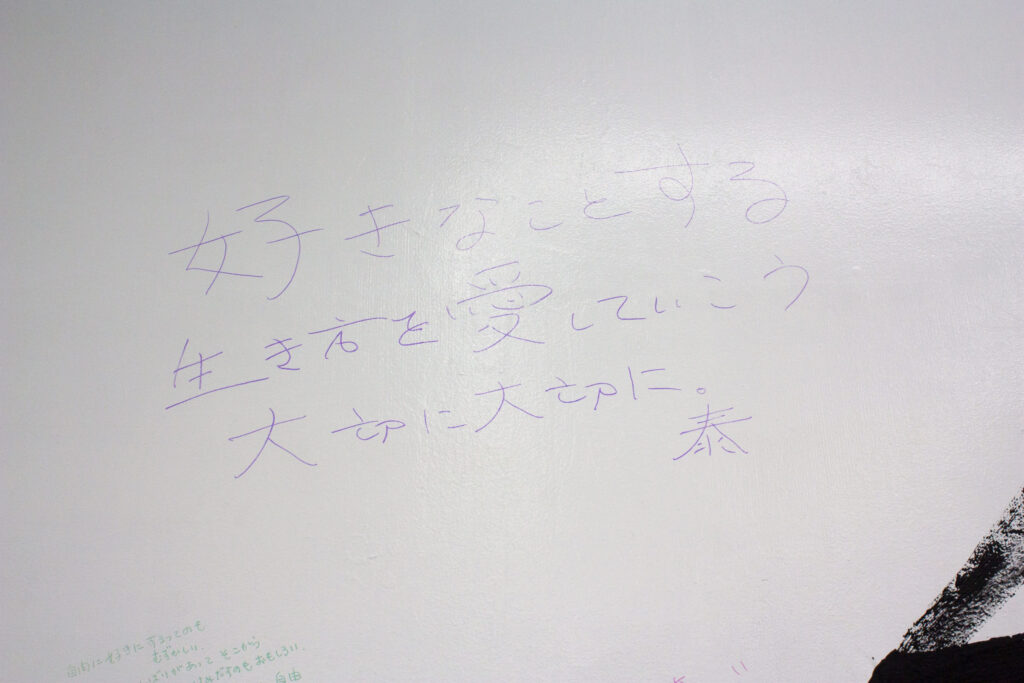 好きなことする
生き方を愛していこう
大切に大切に。
泰
自由に好きにするってのも
むずかしい。
ばりがあって そこから
だすのもおもしろい。
自由